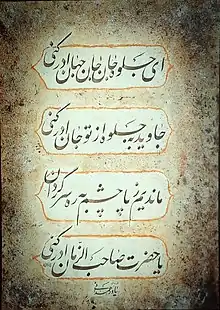 ای جلوه جان جان جهان ادرکنی
جاوید به جلوه از تو جان ادرکنی
ماندیم ز پا چشم به ره سرگردان
یا حضرت صاحب الزمان ادرکنی